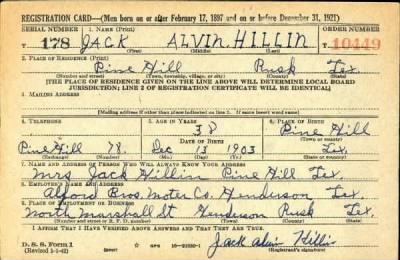 REGISTRATION CARD—(Men born on or after February 17, 1897 and on or before December 31, 1921)
SERIAL NUMBER 1. NAME (Print) ORDER NUMBER
T 178 JACK ALVIN HILLIN T 10449
(First) (Middle) (Last)
2. PLACE OF RESIDENCE (Print)
Pine Hill Rusk Tex.
(Number and street) (Town, township, village, or city) (County) (State)
[THE PLACE OF RESIDENCE GIVEN ON THE LINE ABOVE WILL DETERMINE LOCAL BOARD
JURISDICTION; LINE 2 OF REGISTRATION CERTIFICATE WILL BE IDENTICAL]
3. MAILING ADDRESS
[Mailing address if other than place indicated on line 2. If same insert word same]
4. TELEPHONE 5. AGE IN YEARS 6. PLACE OF BIRTH
38 Pine Hill
DATE OF BIRTH (Town or county)
Pine Hill 78. Dec 13 1903 Tex.
(Exchange) (Number) (Mo.) (Day) (Yr.) (State or country)
7. NAME AND ADDRESS OF PERSON WHO WILL ALWAYS KNOW YOUR ADDRESS
Mrs Jack Hillin Pine Hill Tex.
8. EMPLOYER'S NAME AND ADDRESS
Alford Bros. Moter Co. Henderson Tex.
9. PLACE OF EMPLOYMENT OR BUSINESS
North Marshall St Henderson Rusk Tex.
(Number and street or R. F. D. number) (Town) (County) (State)
I AFFIRM THAT I HAVE VERIFIED ABOVE ANSWERS AND THAT THEY ARE TRUE.
D. S. S. Form 1
(Revised 1-1-42) GPO Jack Alvin Hillin
(Registrant's signature)